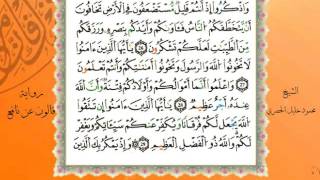 وَاذْكُرُوا إِذْ أَنتُمْ قَلِيلٌ مُّسْتَضْعَفُونَ فِي الْأَرْضِ تَخَافُونَ
أَنْ يَتَخَطَّفَكُمُ النَّاسُ فَآوَاكُمْ وَأَيَّدَكُم بِنَصْرِهِ وَرَزَقَكُم
مِّنَ الطَّيِّبَاتِ لَعَلَّكُمْ تَشْكُرُونَ يَا أَيُّهَا الَّذِينَ آمَنُوا
لَا تَخُونُوا اللَّهَ وَالرَّسُولَ وَتَخُونُوا أَمَانَاتِكُمْ وَأَنتُمْ تَعْلَمُونَ
وَاعْلَمُوا أَنَّمَا أَمْوَالُكُمْ وَأَوْلَادُكُمْ فِتْنَةٌ وَأَنَّ اللَّهَ
عِندَهُ أَجْرٌ عَظِيمٌ يَا أَيُّهَا الَّذِينَ آمَنُوا إِن تَتَّقُوا
اللَّهَ يَجْعَل لَّكُمْ فُرْقَانًا وَيُكَفِّرْ عَنكُمْ سَيِّئَاتِكُمْ وَيَغْفِرْ
لَكُمْ وَاللَّهُ ذُو الْفَضْلِ الْعَظِيمِ وَإِذْ يَمْكُرُ بِكَ الَّذِينَ
الشيخ
محمود خليل الحصري
رواية
قالون عن نافع